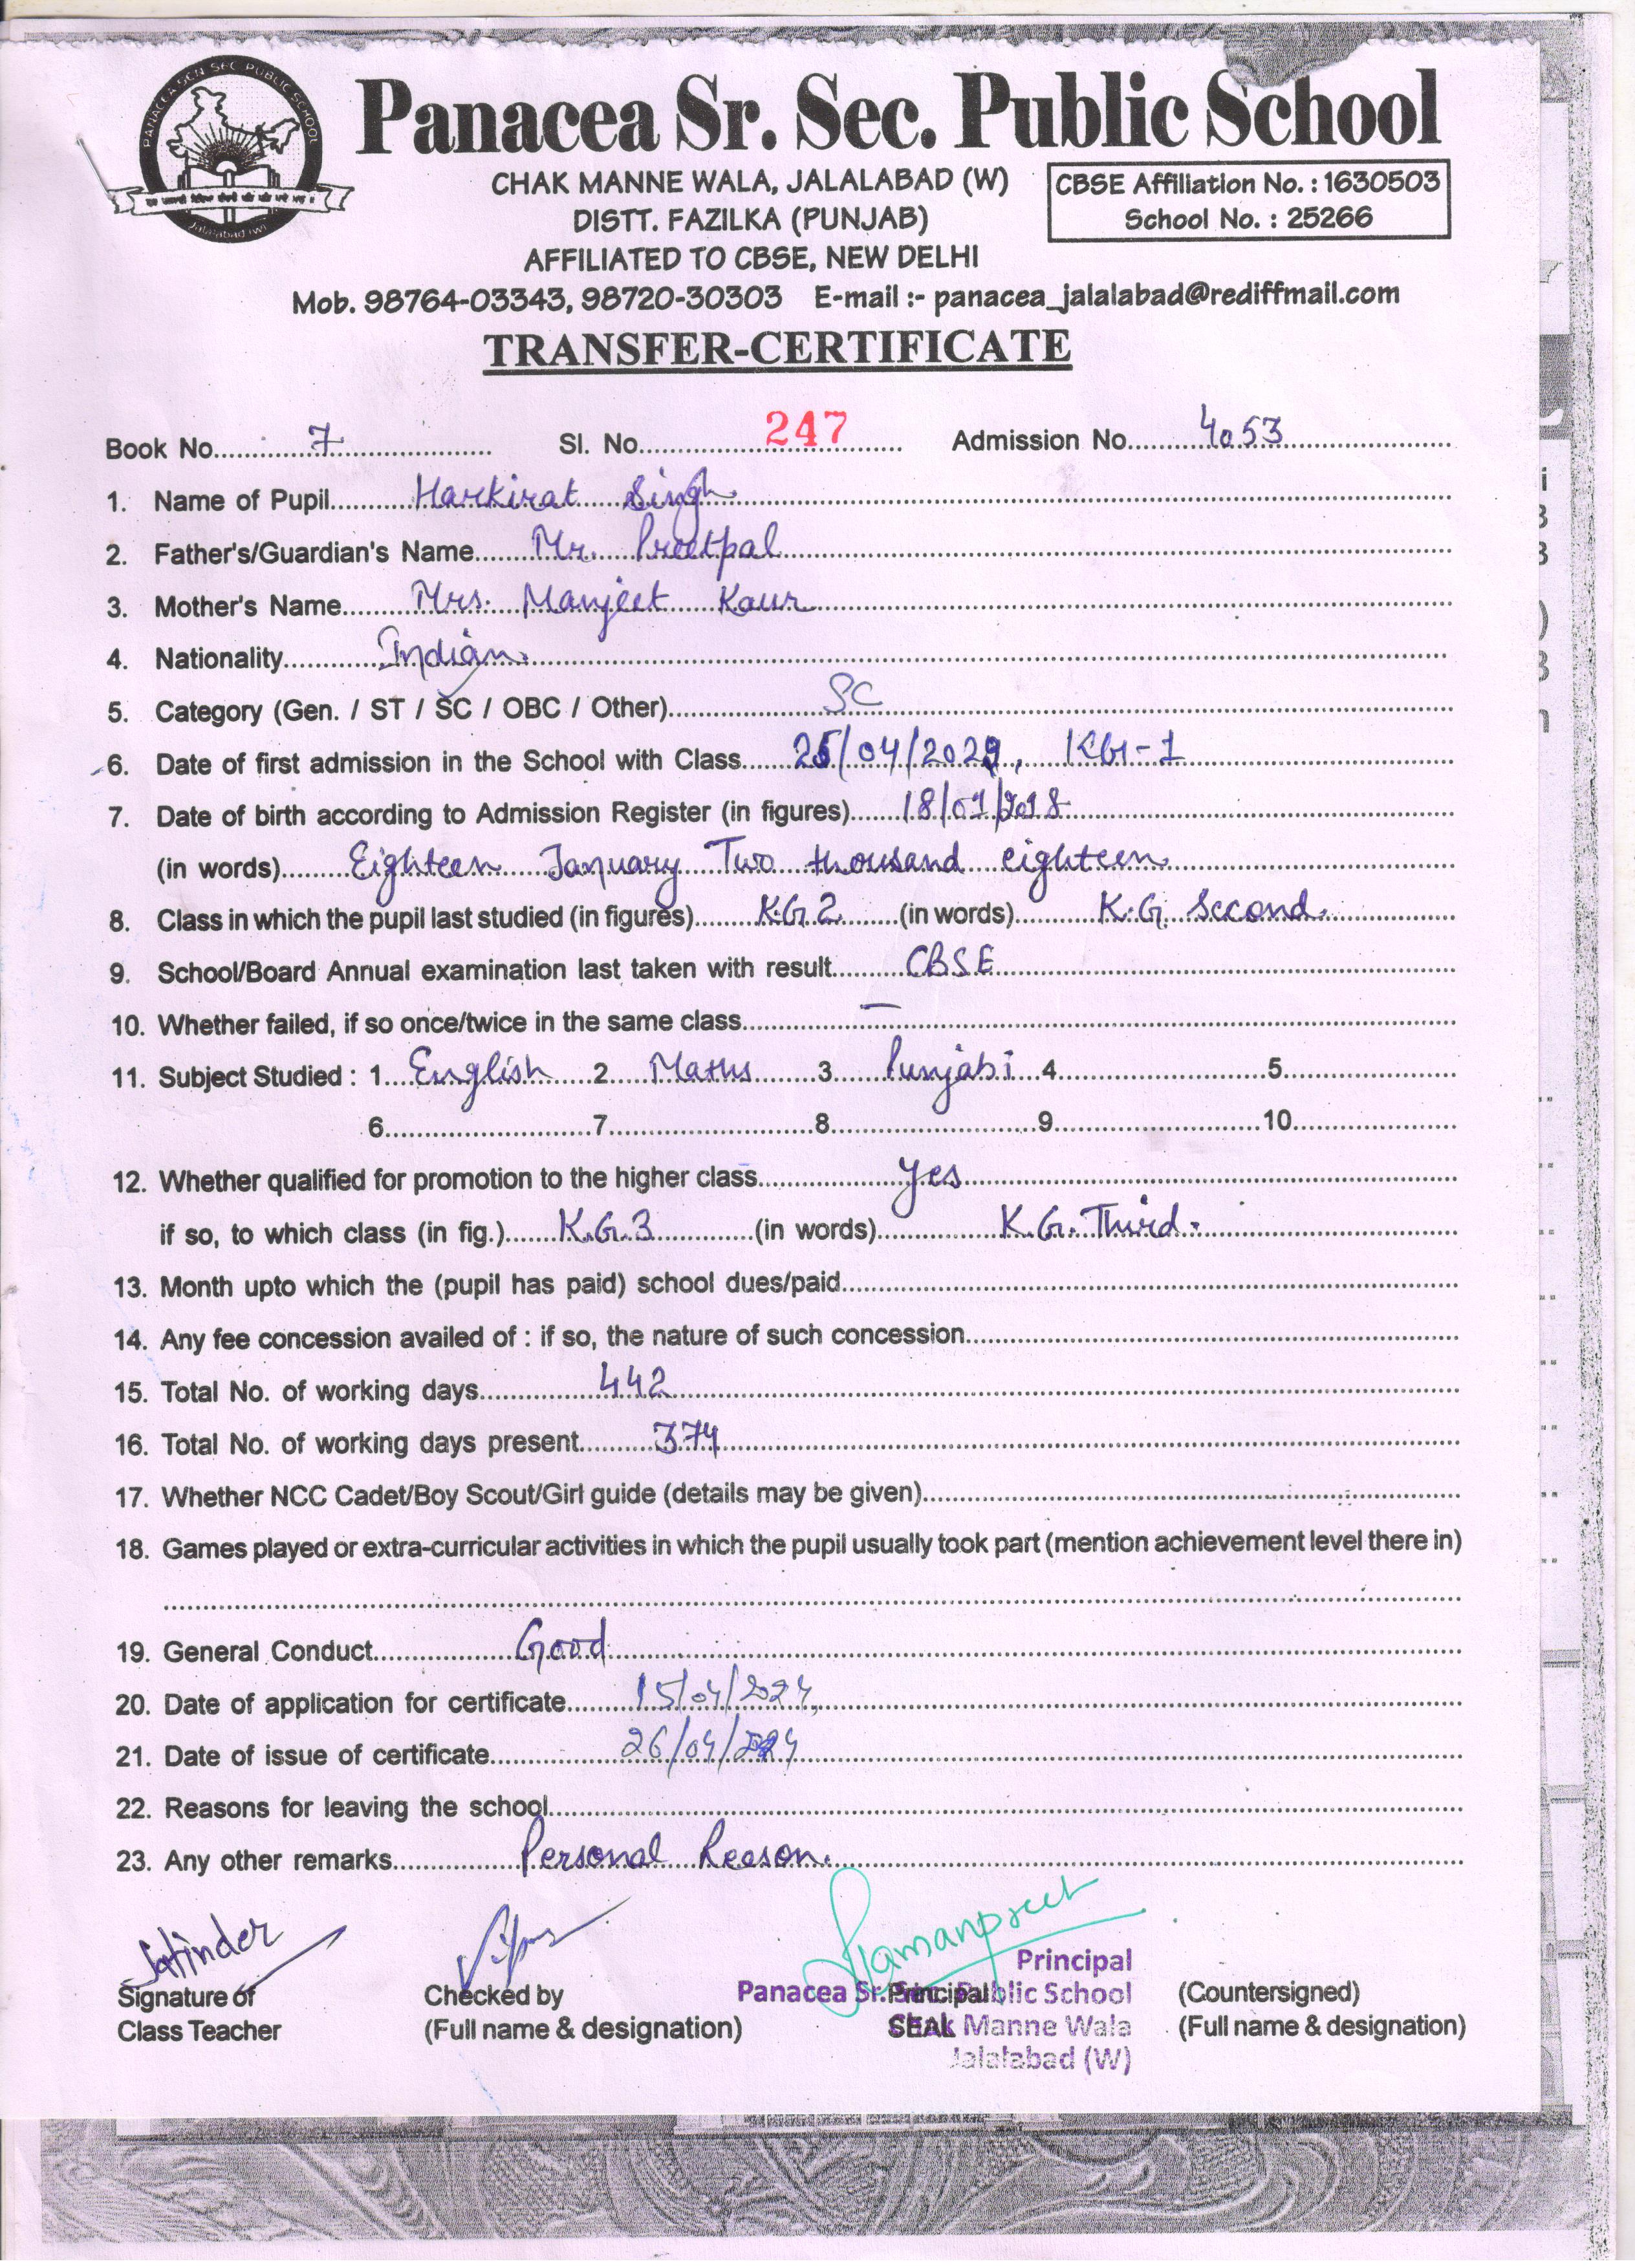 PANACEA SCN SEC PUBLIC SCHOOL
Jalalabad (W)
Panacea Sr. Sec. Public School
CHAK MANNE WALA, JALALABAD (W)
DISTT. FAZILKA (PUNJAB)
AFFILIATED TO CBSE, NEW DELHI
CBSE Affiliation No. : 1630503
School No. : 25266
Mob. 98764-03343, 98720-30303 E-mail :- panacea_jalalabad@rediffmail.com
TRANSFER-CERTIFICATE
Book No. 7 Sl. No. 247 Admission No. 4053
1. Name of Pupil Harkirat Singh
2. Father's/Guardian's Name Mr. Preetpal
3. Mother's Name Mrs. Manjeet Kaur
4. Nationality Indian
5. Category (Gen. / ST / SC / OBC / Other) SC
6. Date of first admission in the School with Class , KG-1
7. Date of birth according to Admission Register (in figures) 18/01/2018
(in words) Eighteen January Two thousand eighteen
8. Class in which the pupil last studied (in figures) K.G.2 (in words) K.G. Second.
9. School/Board Annual examination last taken with result CBSE
10. Whether failed, if so once/twice in the same class —
11. Subject Studied : 1 English 2 Maths 3 Punjabi 4 5
6 7 8 9 10
12. Whether qualified for promotion to the higher class yes
if so, to which class (in fig.) K.G.3 (in words) K.G. Third.
13. Month upto which the (pupil has paid) school dues/paid
14. Any fee concession availed of : if so, the nature of such concession
15. Total No. of working days 442
16. Total No. of working days present 374
17. Whether NCC Cadet/Boy Scout/Girl guide (details may be given)
18. Games played or extra-curricular activities in which the pupil usually took part (mention achievement level there in)
19. General Conduct Good
20. Date of application for certificate 15/04/2024
21. Date of issue of certificate 26/04/2024
22. Reasons for leaving the school
23. Any other remarks Personal Reeson.
Jatinder
Ramanpreet
Signature of
Class Teacher
Checked by
(Full name & designation)
Principal
SEAL
Principal
Panacea Sr. Sec. Public School
Chak Manne Wala
Jalalabad (W)
(Countersigned)
(Full name & designation)